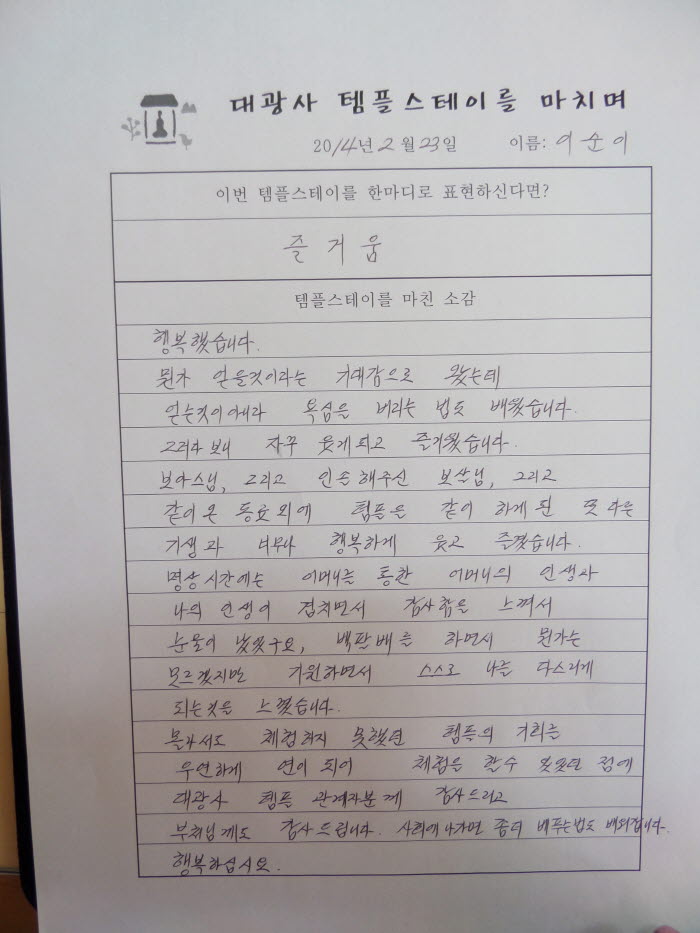 대광사 템플스테이를 마치며
2014년 2월 23일 이름: 이순이
이번 템플스테이를 한마디로 표현하신다면?
즐거움
템플스테이를 마친 소감
행복했습니다.
뭔가 얻을것이라는 기대감으로 왔는데
얻는것이아니라 욕심을 버리는 법도 배웠습니다.
그러다 보니 자꾸 웃게되고 즐거웠습니다.
보아스님, 그리고 인솔해주신 보살님, 그리고
같이온 동료외에 템플을 같이 하게된 또 다른
기생과 너무나 행복하게 웃고 즐겼습니다.
명상시간에는 어머니를 통한 어머니의 인생사
나의 인생이 겹치면서 감사함을 느껴서
눈물이 났었구요, 백팔배를 하면서 뭔가는
모르겠지만 기원하면서 스스로 나를 다스리게
되는것을 느꼈습니다.
몰라서도 체험하지 못했던 템플의 기회를
우연하게 연이 되어 체험을 할수 있었던 점에
대광사 템플 관계자분께 감사드리고
부처님께도 감사드립니다. 사회에나가면 좀더 베푸는법도 배워갑니다.
행복하십시요.